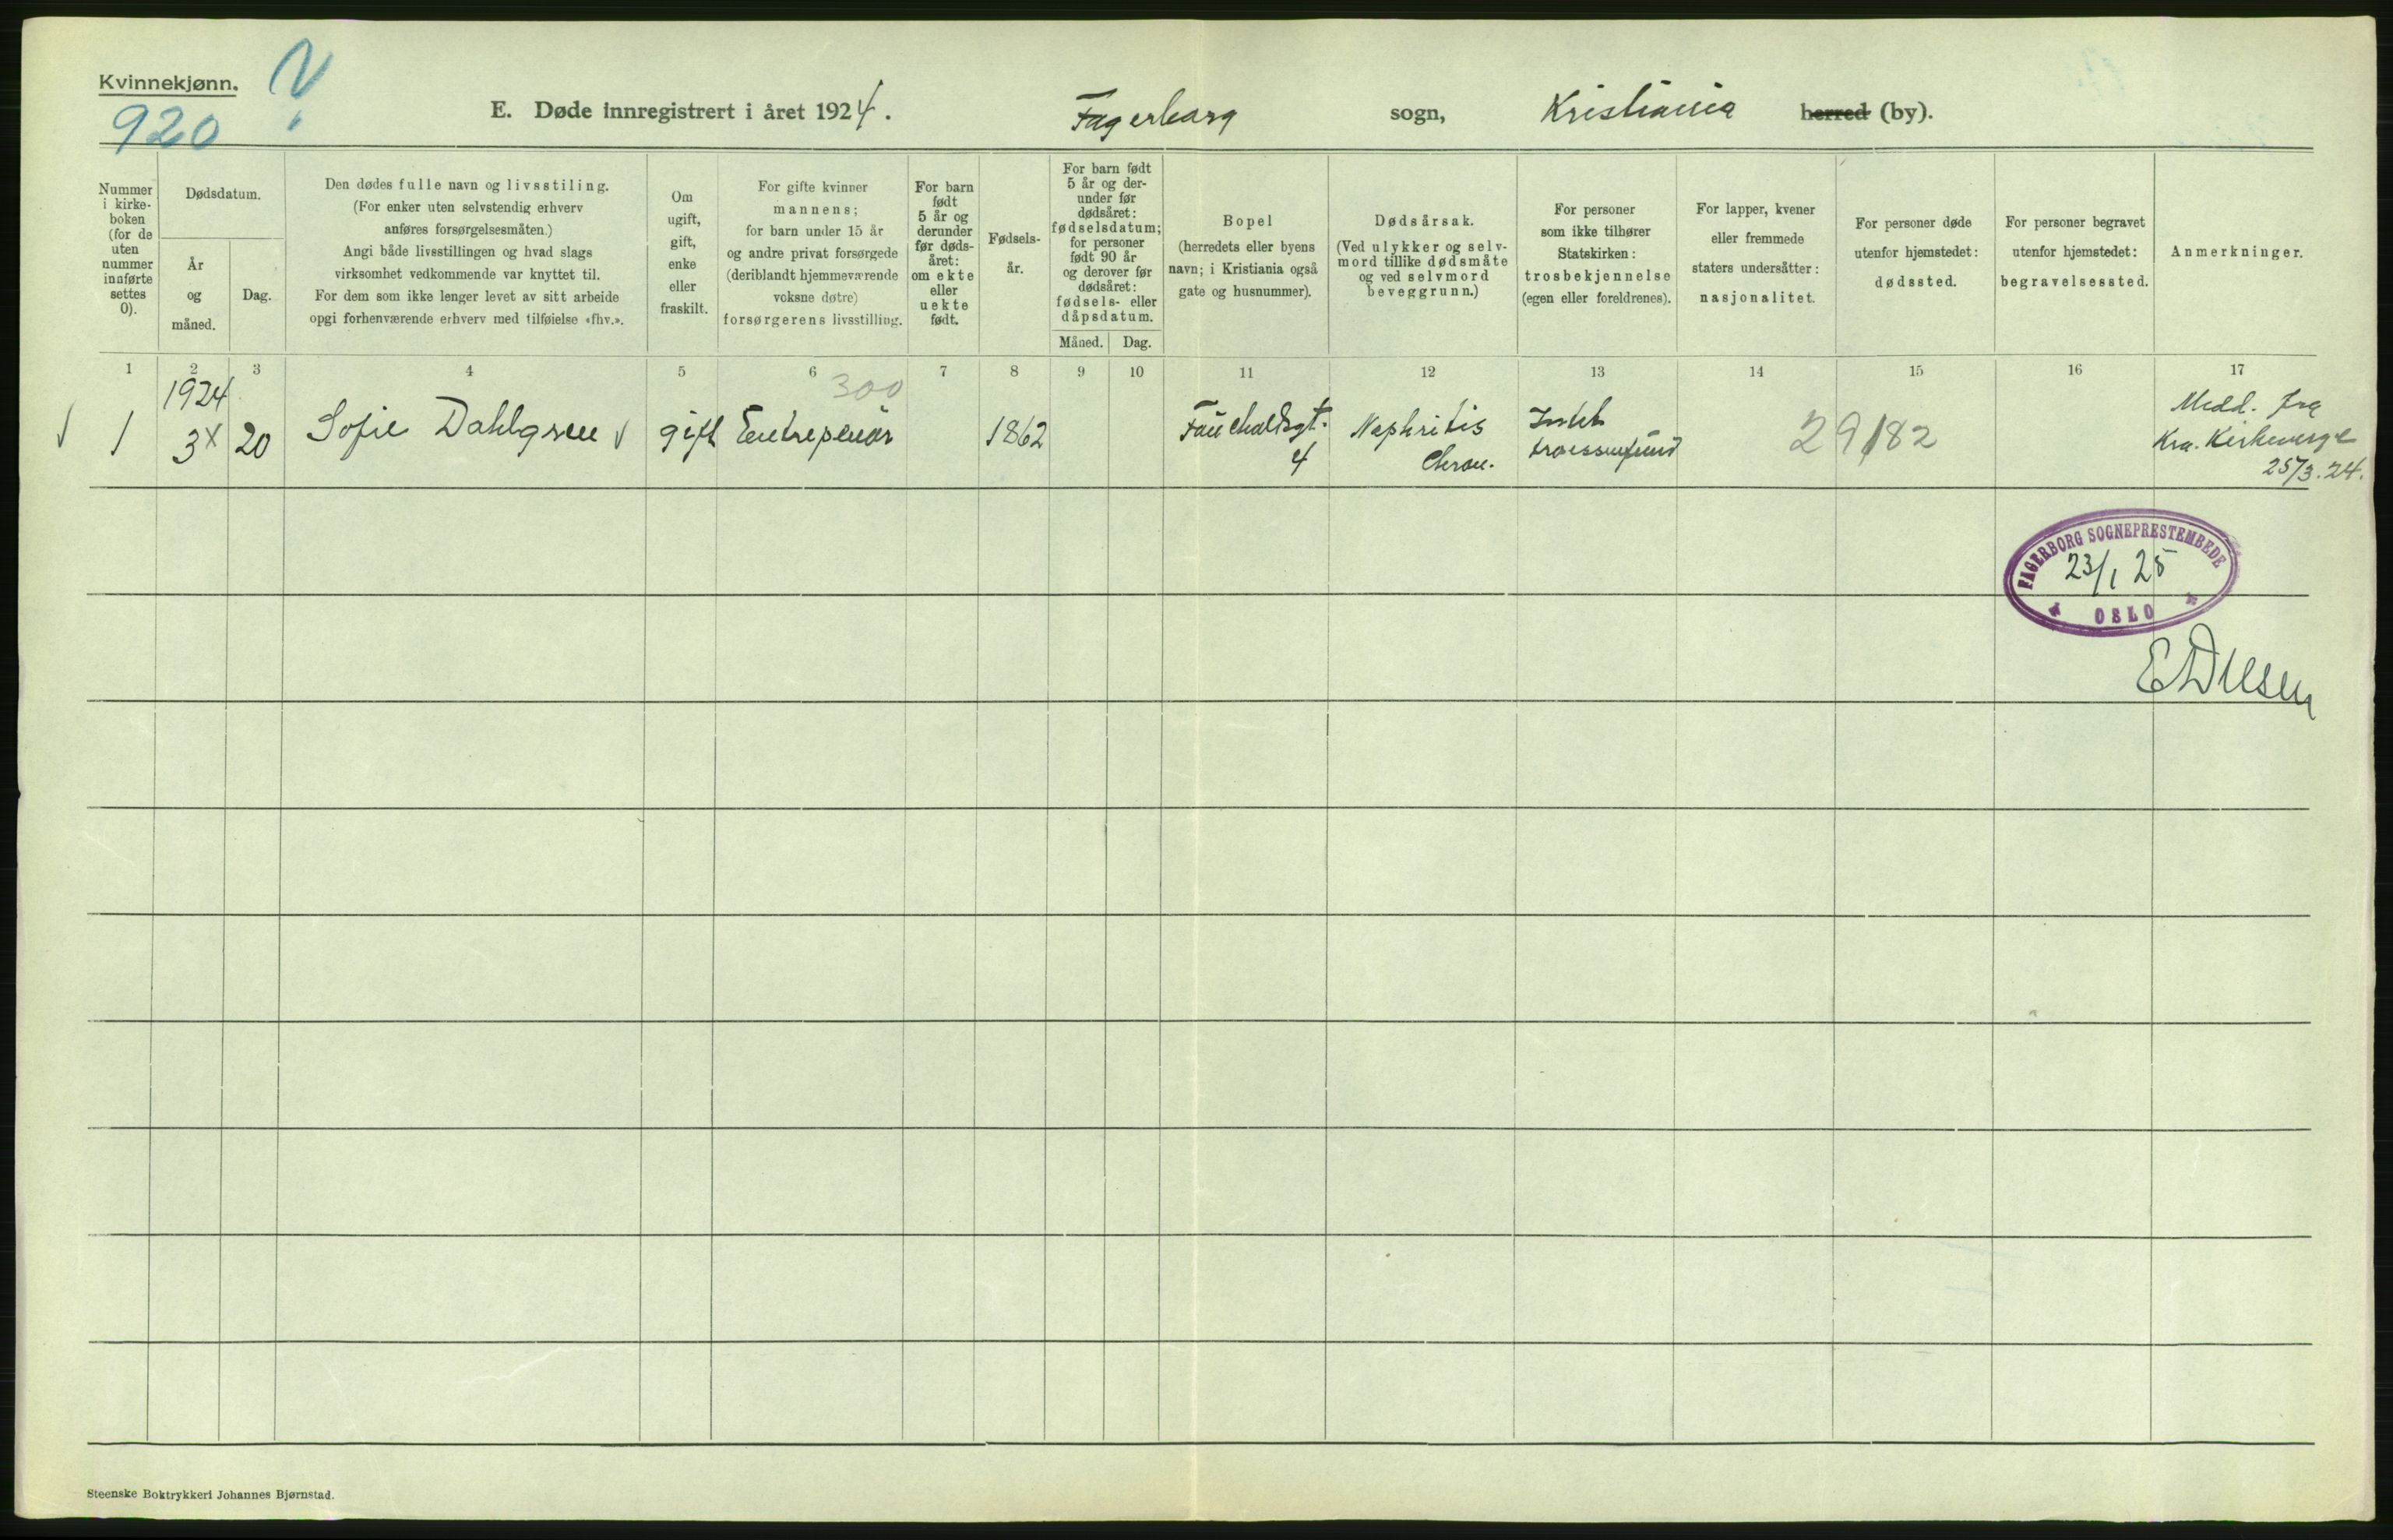 Kvinnekjønn.
920
E. Døde innregistrert i året 1924.
Fagerborg sogn,
Kristiania herred (by).
Nummer
i kirke-
boken
(for de
uten
nummer
innførte
settes
0).
Dødsdatum.
År
og
måned.
Dag.
Den dødes fulle navn og livsstiling.
(For enker uten selvstendig erhverv
anføres forsørgelsesmåten.)
Angi både livsstillingen og hvad slags
virksomhet vedkommende var knyttet til.
For dem som ikke lenger levet av sitt arbeide
opgi forhenværende erhverv med tilføielse «fhv.».
Om
ugift,
gift,
enke
eller
fraskilt.
For gifte kvinner
mannens;
for barn under 15 år
og andre privat forsørgede
(deriblandt hjemmeværende
voksne døtre)
forsørgerens livsstilling.
For barn
født
5 år og
derunder
før døds-
året:
om ekte
eller
uekte
født.
Fødsels-
år.
For barn født
5 år og der-
under før
dødsåret:
fødselsdatum;
for personer
født 90 år
og derover før
dødsåret:
fødsels- eller
dåpsdatum.
Måned. Dag.
Bopel
(herredets eller byens
navn; i Kristiania også
gate og husnummer).
Dødsårsak.
(Ved ulykker og selv-
mord tillike dødsmåte
og ved selvmord
beveggrunn.)
For personer
som ikke tilhører
Statskirken:
trosbekjennelse
(egen eller foreldrenes).
For lapper, kvener
eller fremmede
staters undersåtter:
nasjonalitet.
For personer døde
utenfor hjemstedet:
dødssted.
For personer begravet
utenfor hjemstedet:
begravelsessted.
Anmerkninger.
1 2 3 4 5 6 7 8 9 10 11 12 13 14 15 16 17
1924
300
1 3x 20 Sofie Dahlgren gift Entreprenør 1862
Fauchaldsgt.
4
Nephritis
chron.
trossamfund
29182
Medd. fra
Kra. Kirkeverge
25/3.24.
FAGERBORG SOGNEPRESTEMBEDE
23/1 25
OSLO
Steenske Boktrykkeri Johannes Bjørnstad.